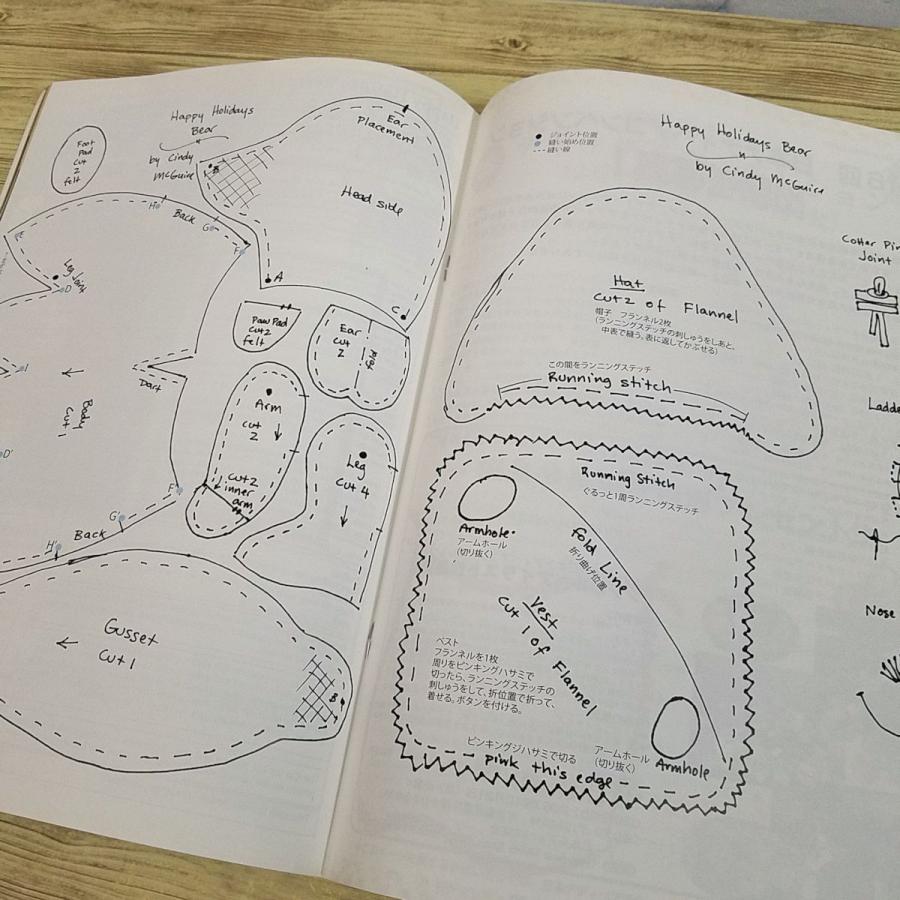 Happy Holidays
Bear
by Cindy
McGuire
Foot
Pad
cut
2
felt
Ear
Placement
Head side
B
A
C
H
Back
G
F
E
Leg Joint
D
I
Dart
Body
Cut 1
D'
F'
G'
Back
H'
Paw Pad
cut 2
felt
Ear
cut
2
Arm
cut
2
cut 2
inner
arm
Leg
cut 4
Gusset
Cut 1
B
● ジョイント位置
● 縫い始め位置
--- 縫い線
Happy Holidays Bear
by Cindy McGuire
Hat
Cut 2 of Flannel
帽子 フランネル2枚
(ランニングステッチの刺しゅうをしあと、
中表で縫う。表に返してかぶせる)
この間をランニングステッチ
Running Stitch
Running Stitch
ぐるっと1周ランニングステッチ
Armhole
アームホール
(切り抜く)
Fold Line
折り曲げ位置
Vest
Cut 1 of Flannel
ベスト
フランネルを1枚
周りをピンキングハサミで
切ったら、ランニングステッチの
刺しゅうをして、折位置で折って、
着せる。ボタンを付ける。
アームホール
(切り抜く)
Armhole
ピンキングジハサミで切る
Pink this edge
Cotter Pin
Joint
Ladde
Nose